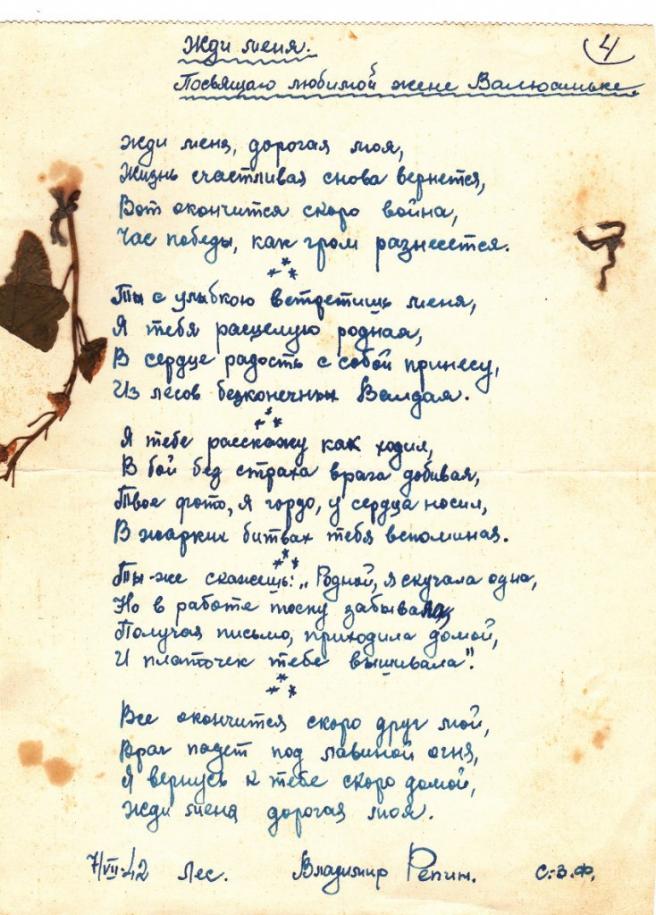 4
Жди меня.
Посвящаю любимой жене Валюсиньке.
Жди меня, дорогая моя,
Жизнь счастливая снова вернется,
Вот окончится скоро война,
Час победы, как гром разнесется.
***
Ты с улыбкою встретишь меня,
Я тебя расцелую родная,
В сердце радость с собой принесу,
Из лесов безконечных Валдая.
***
Я тебе расскажу как ходил,
В бой без страха врага добивая,
Твое фото, я гордо, у сердца носил,
В жарких битвах тебя вспоминая.
***
Ты-же скажешь: „Родной, я скучала одна,
Но в работе тоску забывала,
Получая письмо, приходила домой,
И платочек тебе вышивала".
***
Все окончится скоро друг мой,
Враг падет под лавиной огня,
Я вернусь к тебе скоро домой,
Жди меня дорогая моя.
7/VII-42 Лес. Владимир Репин. С-З.Ф.